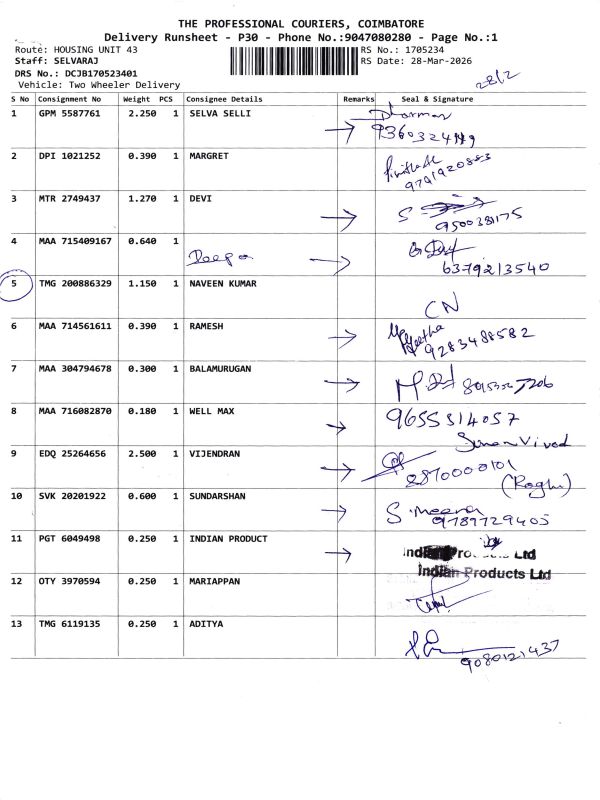 THE PROFESSIONAL COURIERS, COIMBATORE
Delivery Runsheet - P30 - Phone No.:9047080280 - Page No.:1
Route: HOUSING UNIT 43 RS No.: 1705234
Staff: SELVARAJ RS Date: 28-Mar-2026
DRS No.: DCJB170523401
Vehicle: Two Wheeler Delivery
28/2
S No Consignment No Weight PCS Consignee Details Remarks Seal & Signature
1 GPM 5587761 2.250 1 SELVA SELLI
2 DPI 1021252 0.390 1 MARGRET
9791920883
3 MTR 2749437 1.270 1 DEVI
950038175
4 MAA 715409167 0.640 1 Deepa
6379213540
5 TMG 200886329 1.150 1 NAVEEN KUMAR
CN
6 MAA 714561611 0.390 1 RAMESH
Geetha
9283488582
7 MAA 304794678 0.300 1 BALAMURUGAN
8 MAA 716082870 0.180 1 WELL MAX 9655314057
9 EDQ 25264656 2.500 1 VIJENDRAN
2870000101
(Raghu)
10 SVK 20201922 0.600 1 SUNDARSHAN S. Meena
9789729405
11 PGT 6049498 0.250 1 INDIAN PRODUCT
Indian Products Ltd
Indian Products Ltd
12 OTY 3970594 0.250 1 MARIAPPAN
13 TMG 6119135 0.250 1 ADITYA
9080121437